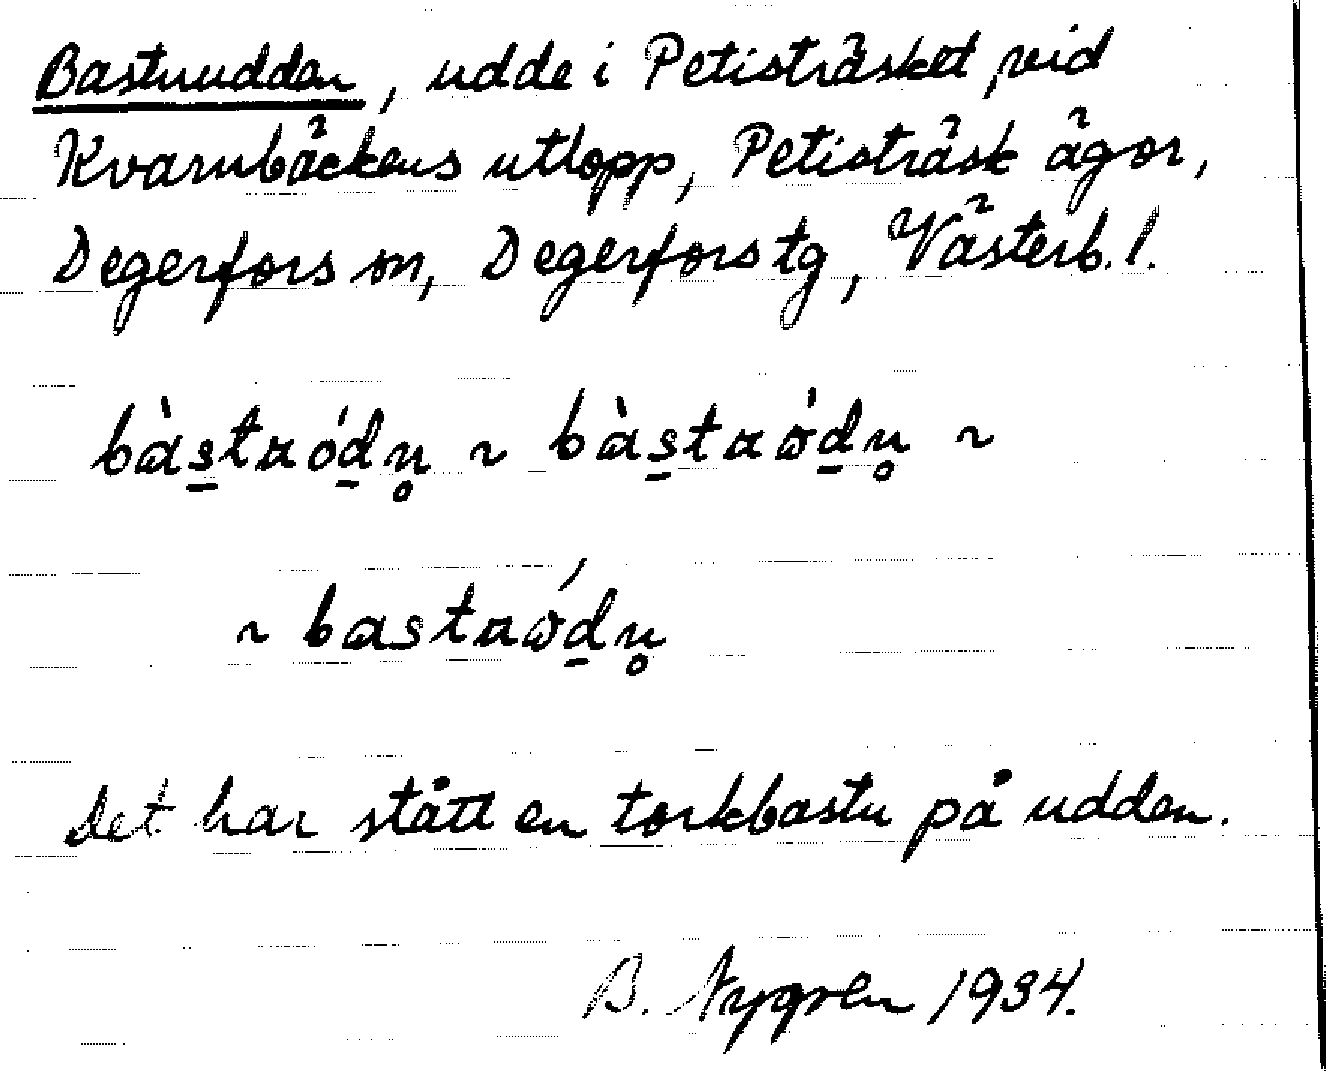 Bastuudden, udde i Petisträsket vid
Kvarnbäckens utlopp, Petisträsk ägor,
Degerfors sn, Degerfors tg, Västerb. l.
bàs̲taód̲n̥ ~ bàs̲taɷ́d̲n̥ ~
~ bastaɷ́d̲n̥
Det har stått en torkbastu på udden.
B. Nygren 1934.